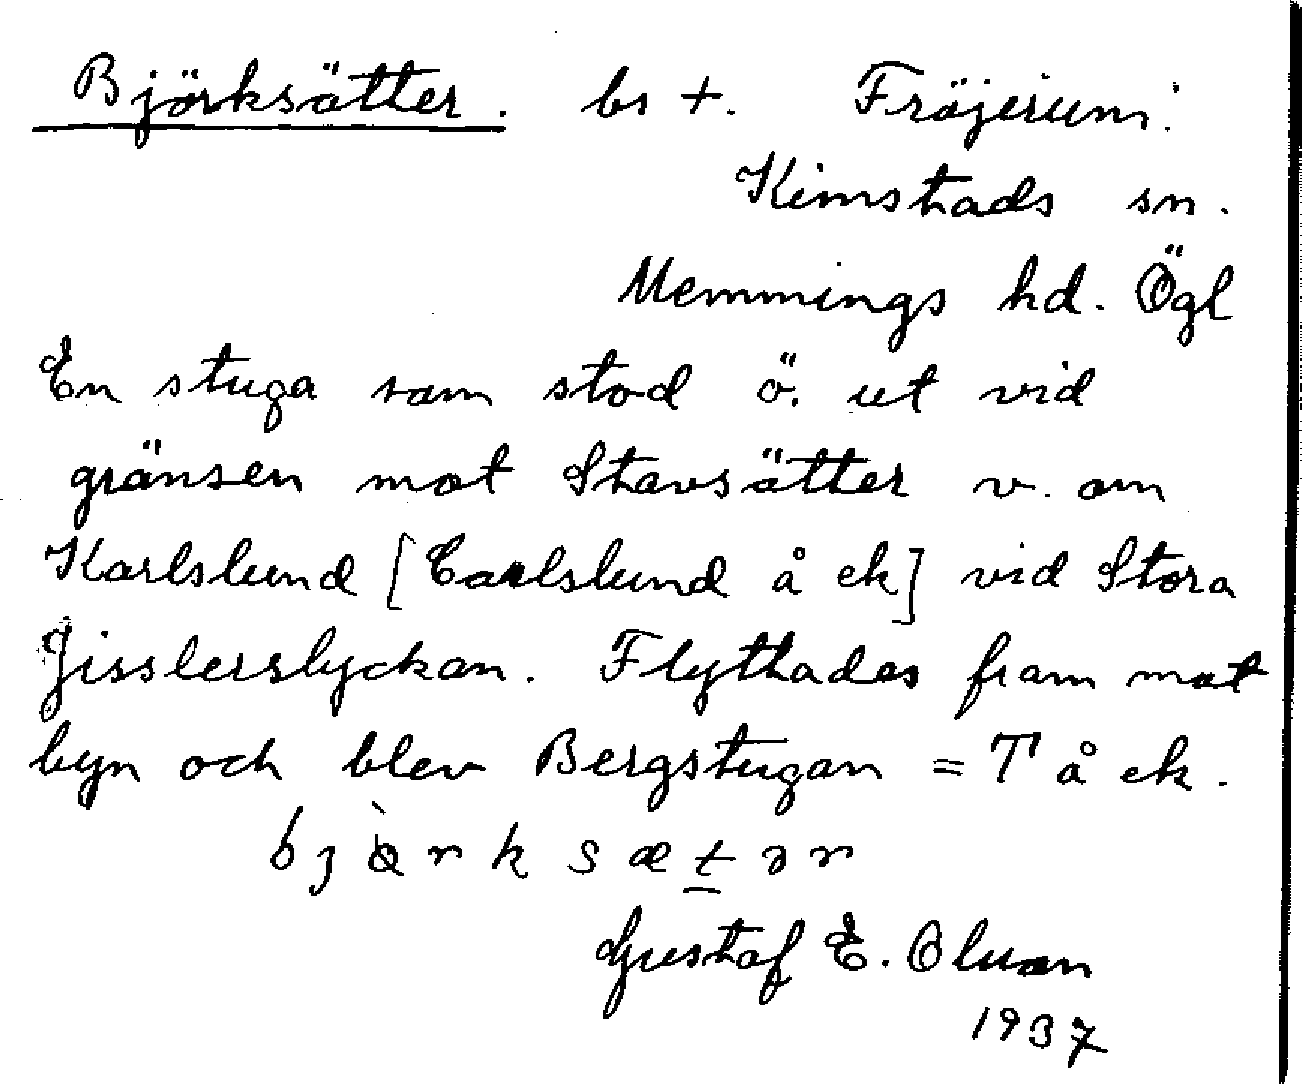 Björksätter. bs +. Fröjerum:
Kimstads sn.
Memmings hd. Ögl
En stuga som stod ö. ut vid
gränsen mot Stavsätter v. om
Karlslund [Carlslund å ek] vid Stora
Jisslerslyckan. Flyttades fram mot
byn och blev Bergstugan = T å ek.
Gustaf E.
1937